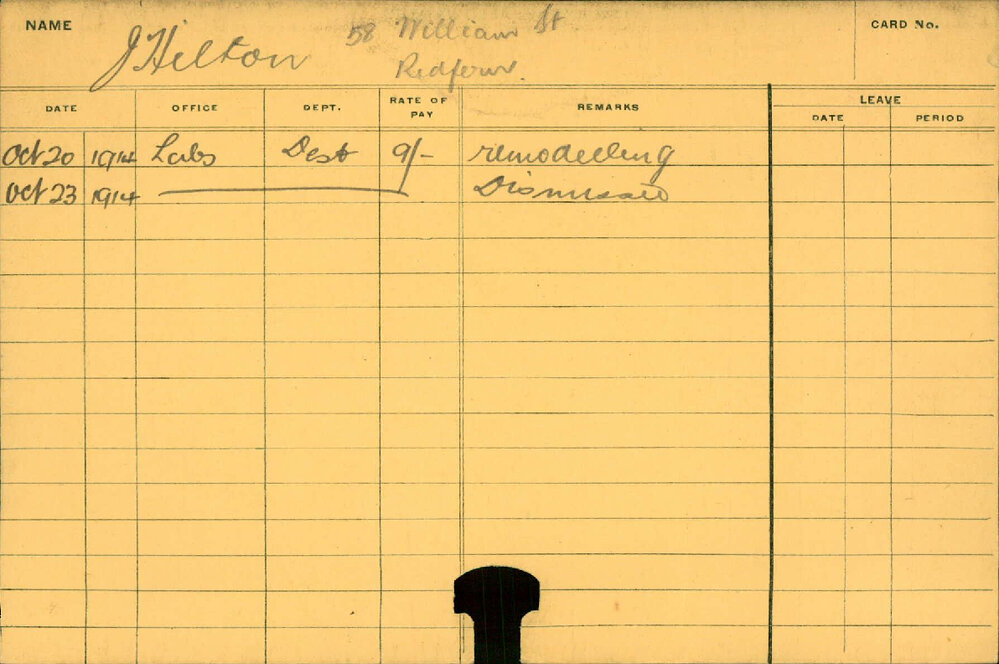 NAME J Hilton 58 William St CARD No.
Redfern.
DATE OFFICE DEPT. RATE OF PAY REMARKS LEAVE
DATE PERIOD
Oct 20 1914 Labs 9/- remodelling
Oct 23 1914